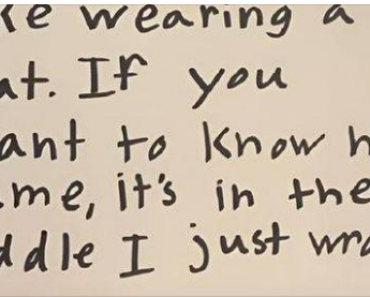 ke wearing a
at. If you
ant to know h
me, it's in the
ddle I just wro